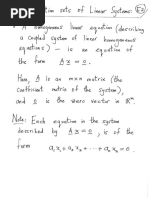 ution sets of Linear Systems:
• A homogenous linear equation (describing
a coupled system of linear homogenous
equations) – is an equation of
the form A x = 0.
Here, A is an m×n matrix (the
coefficient matrix of the system),
and 0 is the zero vector in ℝᵐ.
Note: Each equation in the system
described by A x = 0, is of the
form
a₁x₁ + a₂x₂ + ⋯ + aₙxₙ = 0.